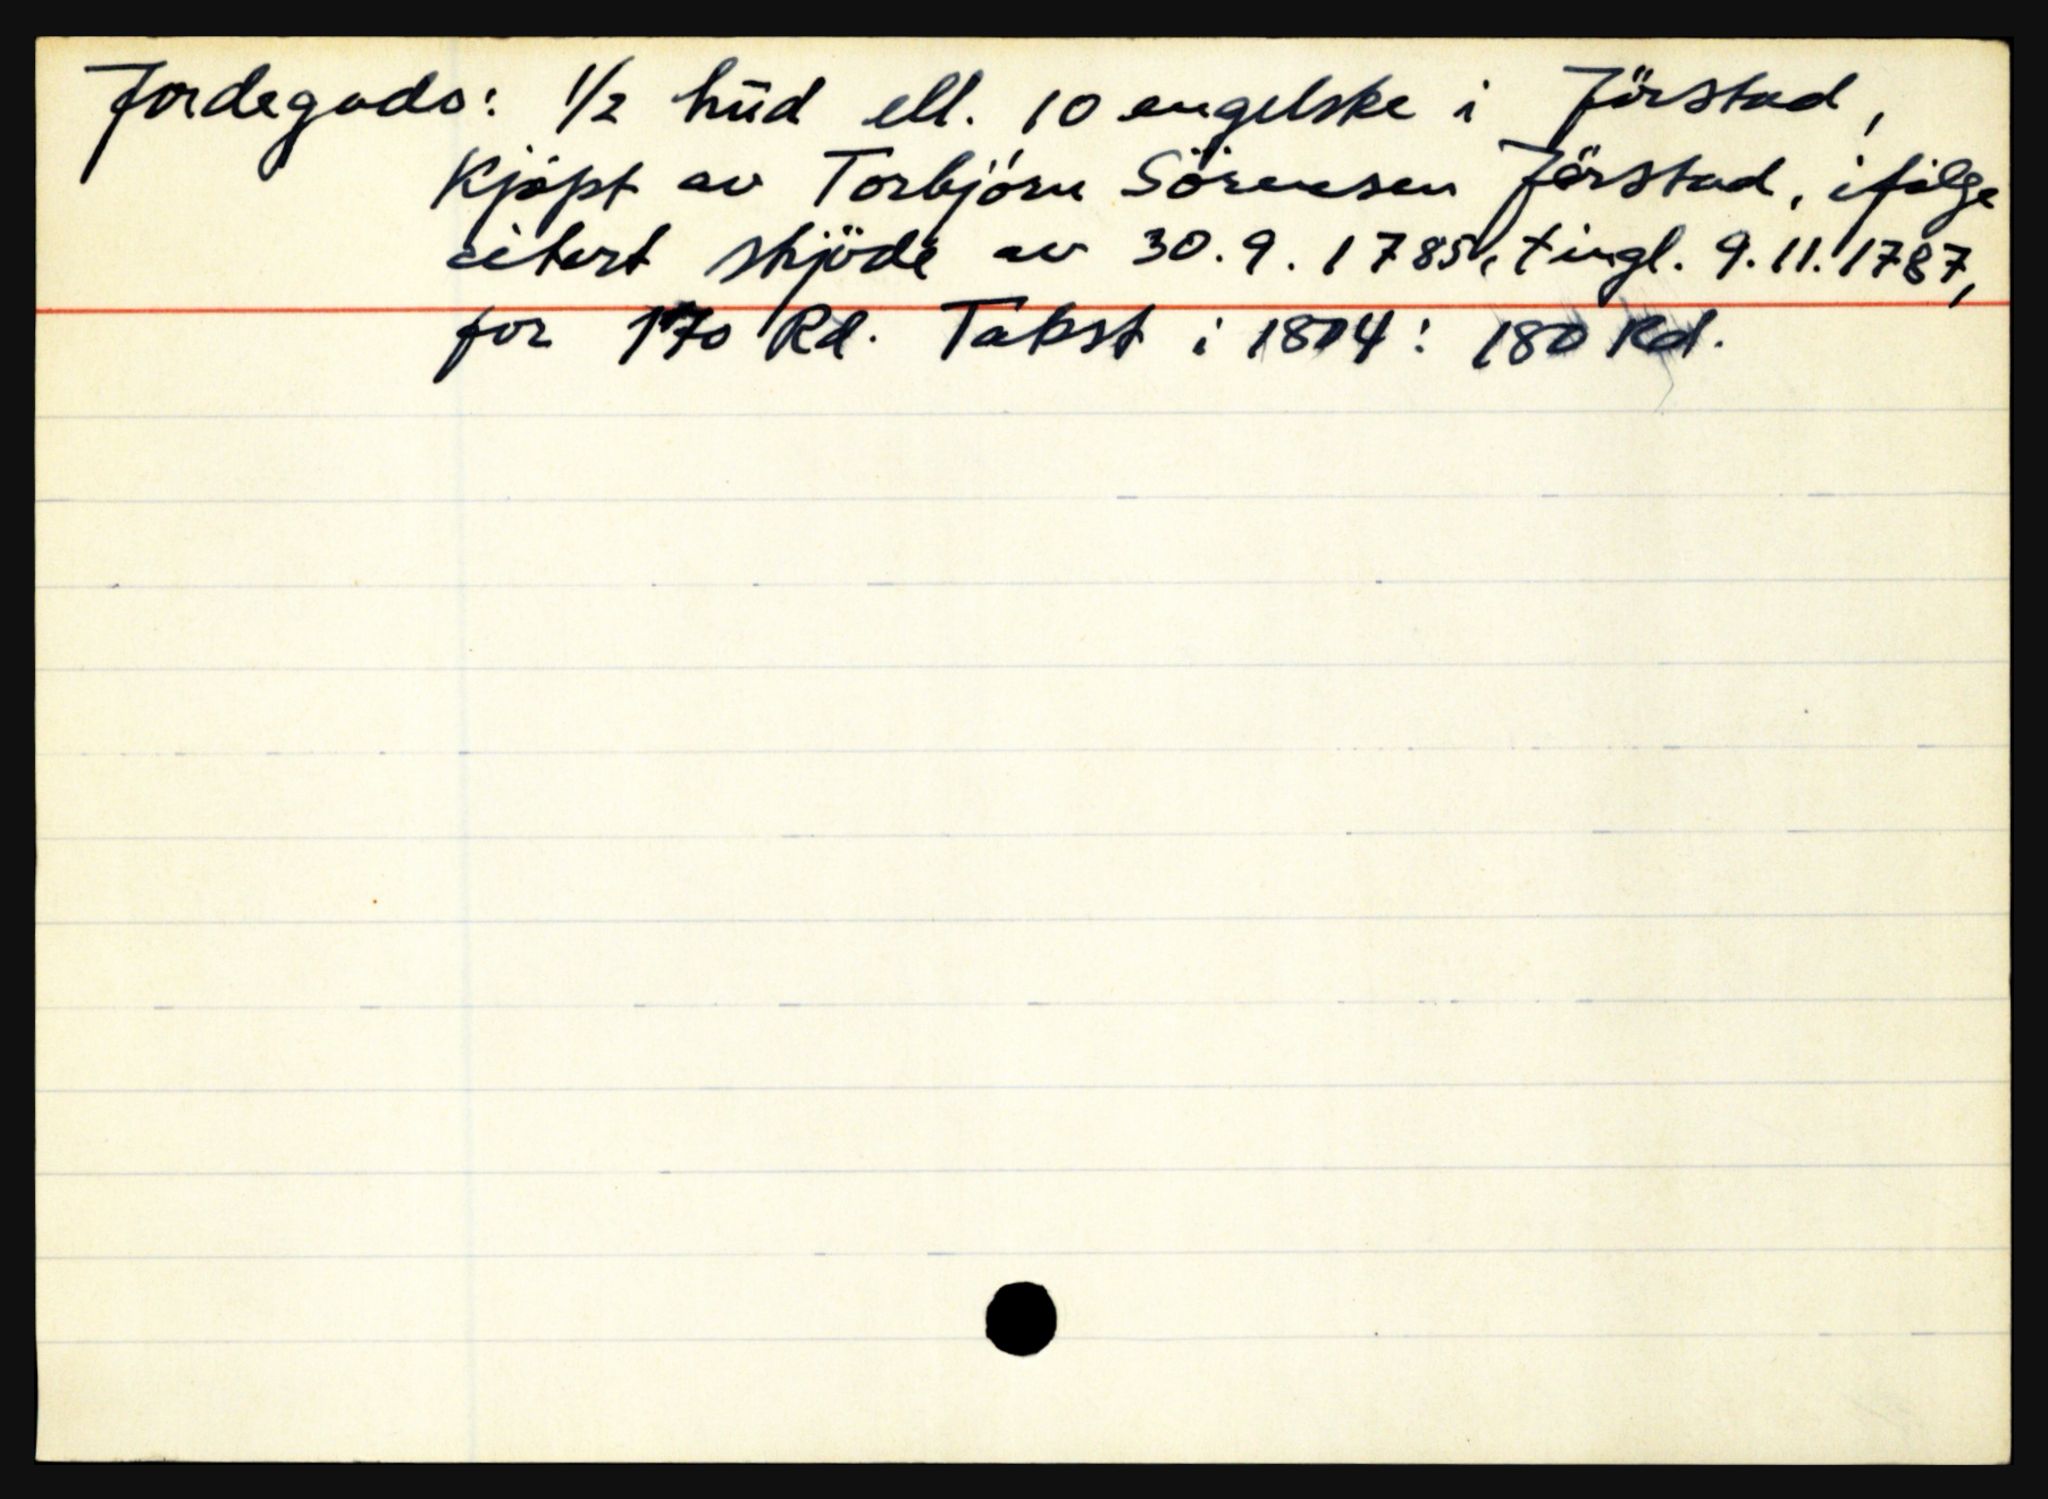 Jordegods: 1/2 hūd ell. 10 engelske i Jörstad,
Kjöpt av Torbjörn Sörensen Jörstad, ifölge
citert skjöde av 30.9.1785, tingl. 9.11.1787,
for 170 Rd. Takst i 1804: 180 Rd.